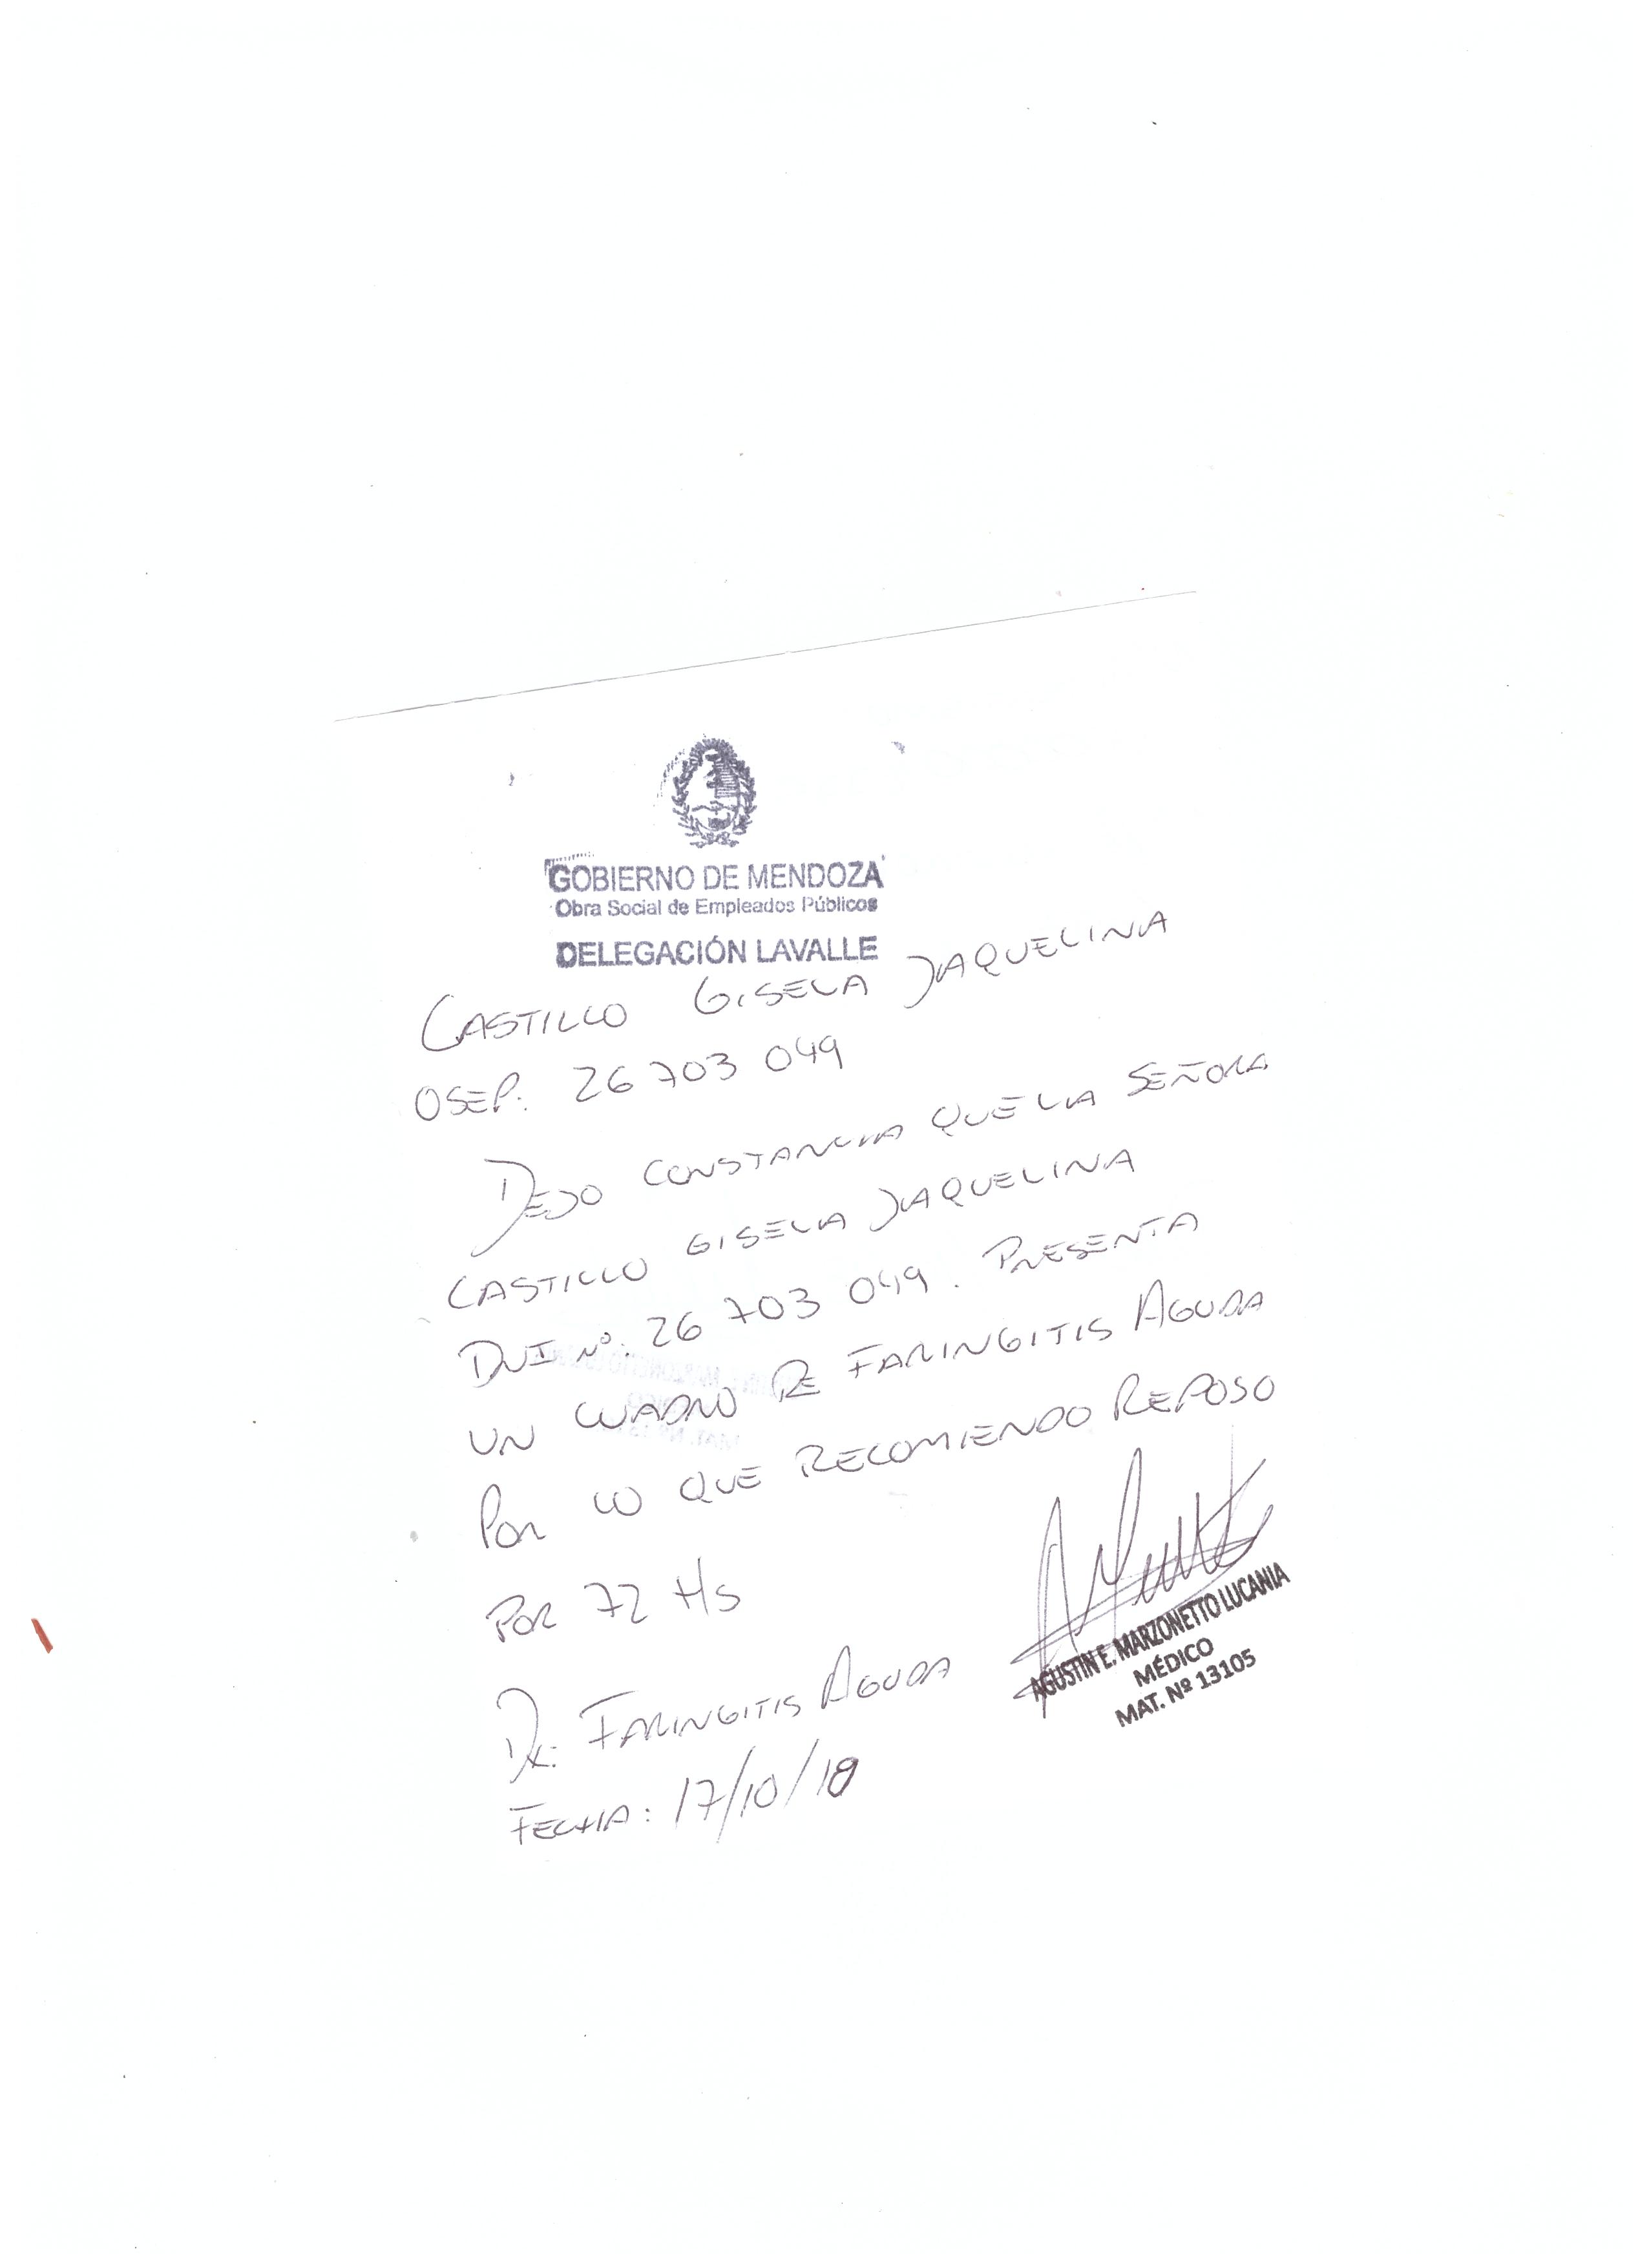 GOBIERNO DE MENDOZA
Obra Social de Empleados Públicos
DELEGACIÓN LAVALLE
CASTILLO GISELA JAQUELINA
OSEP: 26 703 049
DEJO CONSTANCIA QUE LA SEÑORA
CASTILLO GISELA JAQUELINA
DNI Nº: 26 703 049. PRESENTA
UN CUADRO DE FARINGITIS AGUDA
POR LO QUE RECOMIENDO REPOSO
POR 72 HS
DX: FARINGITIS AGUDA
FECHA: 17/10/18
AGUSTIN E. MARZONETTO LUCANIA
MÉDICO
MAT. Nº 13105